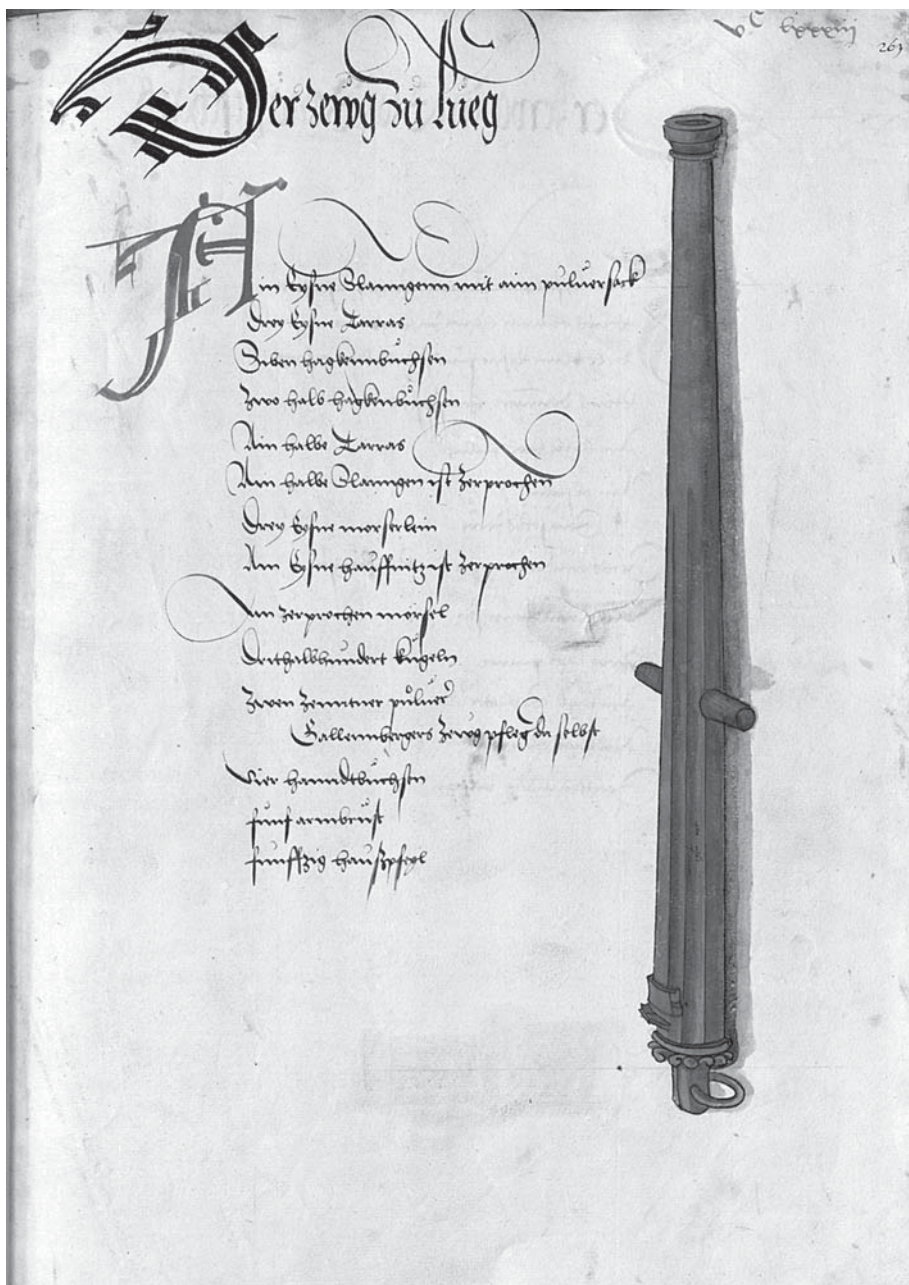 lxxxiij
263
Der zewg zu Lueg
Ain Eysne Slanngenn mit aim puluersack
Drey Eysne Tarras
Siben hagkennbüchsen
Zwo halb hagkenbüchsen
Ain halbe Tarras
Ain halbe Slanngen ist zerprochen
Drey Eysne morserlein
Ain Eysne hauffnitz ist zerprochen
Ain zerprochen morsel
Drithalbhundert kugeln
Zwen Zenntner puluer
Gallennbergers zewg pfleg da selbst
Vier hanndtbüchsen
funf armbrust
funffzig hauszpfeyl